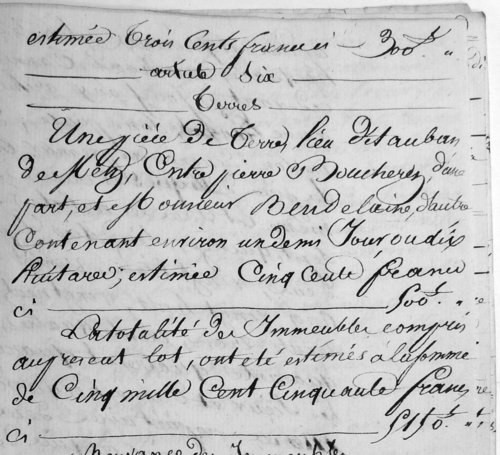 estimée trois cents francs ci — 300f "
article six
Terres
Une pièce de Terres, lieu dit au ban
de Metz, Entre pierre Boucheres, d'une
part, et Monsieur Bendelaine, d'autre
Contenant environ un demi Jour ou dix
huit ares; estimée Cinq Cents francs
ci — 500f "
La totalité des Immeubles compris
au present lot, ont été estimés à la somme
de Cinq mille Cent Cinquante francs
ci — 5150f "